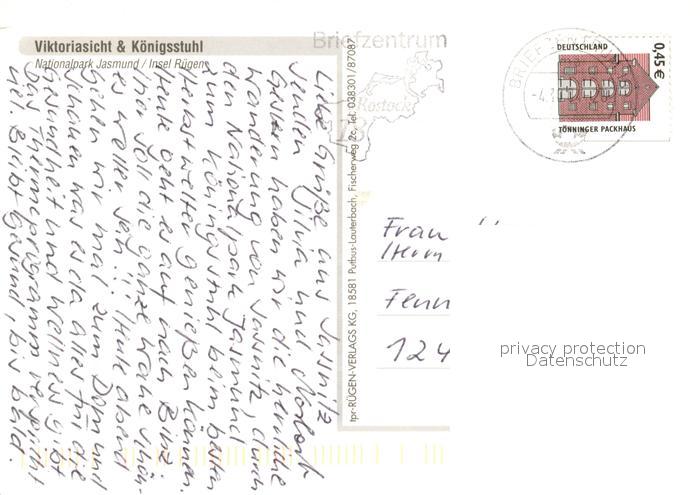 Viktoriasicht & Königsstuhl
Nationalpark Jasmund / Insel Rügen
Briefzentrum
Rostock
BRIEFZEN
-4.
DEUTSCHLAND
0,45€
TÖNNINGER PACKHAUS
Liebe Grüße aus Sassnitz
senden Silvia und
Gestern haben wir die
Wanderung von Sassnitz, durch
den Nationalpark Jasmund
zum Königsstuhl beim besten
Herbstwetter genießen können.
Heute geht es auf nach Binz.
Hier soll die ganze Woche schön-
es Wetter sein!!! Heute abend
gehen wir mal zum
schauen was es da alles für die
Gesundheit und Wellness gibt.
Das Thermeprogramm verspricht
viel. Bleibt Gesund, bis bald.
tpr-RÜGEN-VERLAGS KG, 18581 Putbus-Lauterbach, Fischerweg 2c, Tel. 038301/87087
Frau
Herrn
Fenn
124
privacy protection
Datenschutz